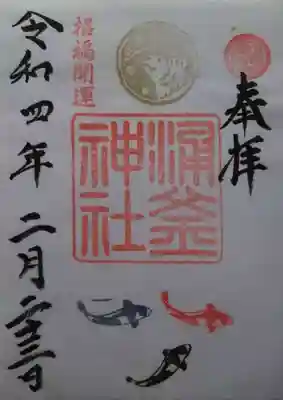 奉拝
涌釜
神社
招福開運
令和四年 二月二十三日